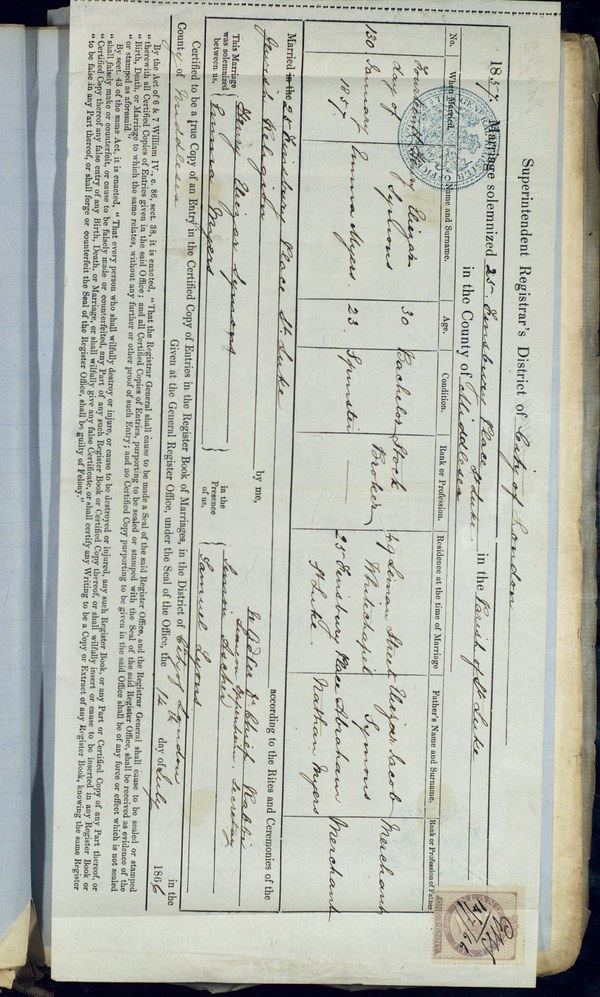 Superintendent Registrar's District of City of London
1857. Marriage solemnized 25 Finsbury Place St Luke in the Parish of St Luke
in the County of Middlesex
No. When Married. Name and Surname. Age. Condition. Rank or Profession. Residence at the time of Marriage Father's Name and Surname. Rank or Profession of Father
130 Fourteenth day of January 1857
Henry Eleazar Symons 30 Bachelor Stock Broker 49 Leman Street Whitechapel Eleazar Jacob Symons Merchant
Emma Myers. 23. Spinster 25 Finsbury Place St Luke Abraham Nathan Myers Merchant
Married in the 25 Finsbury Place St Luke according to the Rites and Ceremonies of the
Jewish Religion by me,
N Adler Dr Chief Rabbi
Simeon Oppenheim Secretary
This Marriage was solemnized between us,
Henry Eleazar Symons
Emma Myers
in the Presence of us,
Samuel Lyons
Certified to be a true Copy of an Entry in the Certified Copy of Entries in the Register Book of Marriages, in the District of City of London in the
County of Middlesex Given at the General Register Office, under the Seal of the Office, the 14 day of July 1866
By the Act of 6 & 7 William IV., c. 86, sect. 38, it is enacted, "That the Registrar General shall cause to be made a Seal of the said Register Office, and the Registrar General shall cause to be sealed or stamped
"therewith all Certified Copies of Entries given in the said Office; and all Certified Copies of Entries, purporting to be sealed or stamped with the Seal of the said Register Office, shall be received as evidence of the
"Birth, Death, or Marriage to which the same relates, without any further or other proof of such Entry; and no Certified Copy purporting to be given in the said Office shall be of any force or effect which is not sealed
"or stamped as aforesaid."
By sect. 43 of the same Act, it is enacted, "That every person who shall wilfully destroy or injure, or cause to be destroyed or injured, any such Register Book, or any Part or Certified Copy of any Part thereof, or
"shall falsely make or counterfeit, or cause to be falsely made or counterfeited, any Part of any such Register Book or Certified Copy thereof, or shall wilfully insert or cause to be inserted in any Register Book or
"Certified Copy thereof any false entry of any Birth, Death, or Marriage, or shall wilfully give any false Certificate, or shall certify any Writing to be a Copy or Extract of any Register Book, knowing the same Register
"to be false in any Part thereof, or shall forge or counterfeit the Seal of the Register Office, shall be guilty of Felony."